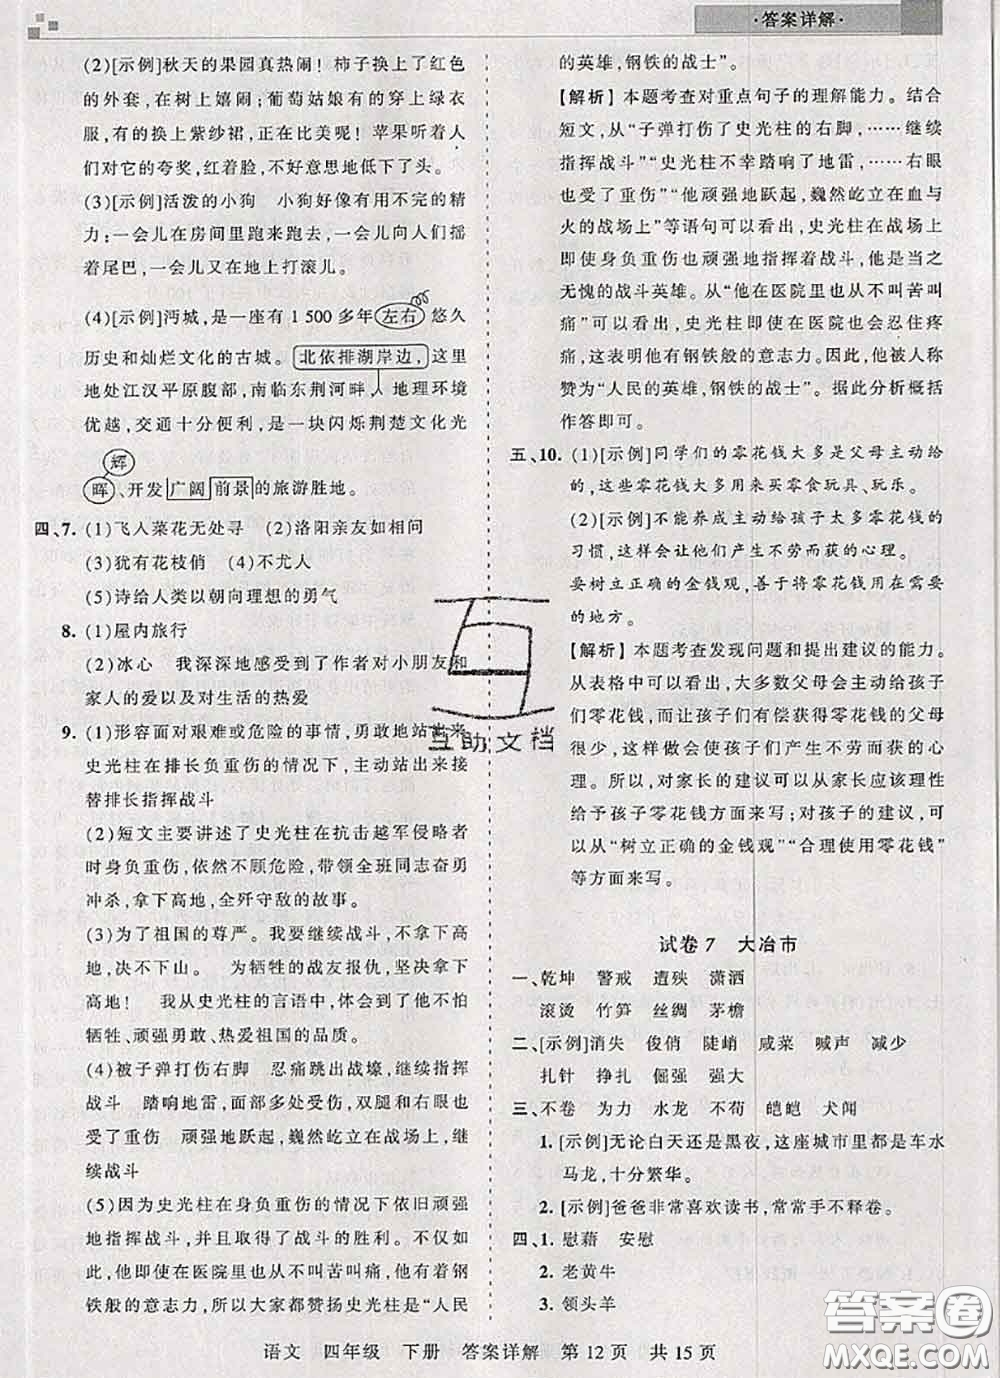 ·答案详解·
(2)[示例]秋天的果园真热闹！柿子换上了红色
的外套，在树上嬉闹；葡萄姑娘有的穿上了绿衣
服，有的换上紫纱裙，正在比美呢！苹果听着人
们对它的夸奖，红着脸，不好意思地低下了头。
(3)[示例]活泼的小狗　小狗好像有用不完的精
力：一会儿在房间里跑来跑去，一会儿向人们摇
着尾巴，一会儿又在地上打滚儿。
(4)[示例]沔城，是一座有1 500多年左右悠久
历史和灿烂文化的古城。北依排湖岸边，这里
地处江汉平原腹部，南临东荆河畔，地理环境
优越，交通十分便利，是一块闪烁荆楚文化光
辉
晖、开发广阔前景的旅游胜地。
四、7. (1)飞入菜花无处寻　(2)洛阳亲友如相问
(3)犹有花枝俏　(4)不尤人
(5)诗给人类以朝向理想的勇气
8. (1)屋内旅行
(2)冰心　我深深地感受到了作者对小朋友和
家人的爱以及对生活的热爱
9. (1)形容面对艰难或危险的事情，勇敢地站出来
史光柱在排长负重伤的情况下，主动站出来接
替排长指挥战斗
(2)短文主要讲述了史光柱在抗击越军侵略者
时身负重伤，依然不顾危险，带领全班同志奋勇
冲杀，拿下高地，全歼守敌的故事。
(3)为了祖国的尊严。我要继续战斗，拿下高
地，　为牺牲的战友报仇，坚决把高地拿下
来！　我从史光柱的言语中体会到了他不怕
牺牲、顽强勇敢、热爱祖国的品质。
(4)被子弹打伤右脚　忍痛跳出战壕，继续指挥
战斗　踏响地雷，面部多处受伤，双腿和右眼也
受了重伤　顽强地跃起，巍然屹立在战场上，继
续战斗
(5)因为史光柱在身负重伤的情况下依旧顽强
地指挥战斗，并且取得了战斗的胜利。不仅如
此，他即使在医院里也从不叫苦叫痛，他有着钢
铁般的意志力，所以大家都赞扬史光柱是“人民
的英雄，钢铁的战士”。
[解析]本题考查对重点句子的理解能力。结合
短文，从“子弹打伤了史光柱的右脚，……继续
指挥战斗”“史光柱不幸踏响了地雷，……右眼
也受了重伤”“他顽强地跃起，巍然屹立在血与
火的战场上”等语句可以看出，史光柱在战场上
即使身负重伤也顽强地指挥着战斗，他是当之
无愧的战斗英雄。从“他在医院里也从不叫苦叫
痛”可以看出，史光柱即使在医院也会忍住疼
痛，这表明他有钢铁般的意志力。因此，他被人称
赞为“人民的英雄，钢铁的战士”。据此分析概括
作答即可。
五、10. (1)[示例]同学们的零花钱大多是父母主动给
的，这些零花钱大多用来买零食玩具、玩乐。
(2)[示例]不能养成主动给孩子太多零花钱的
习惯，这样会让他们产生不劳而获的心理。
要树立正确的金钱观，善于将零花钱用在需要
的地方。
[解析]本题考查发现问题和提出建议的能力。
从表格中可以看出，大多数父母会主动给孩子
们零花钱，而让孩子们有偿获得零花钱的父母
很少，这样就会让孩子们产生不劳而获的心
理。所以，对家长的建议可以从家长应该理性
给予孩子零花钱方面来写；对孩子的建议，可
以从“树立正确的金钱观”“合理使用零花钱”
等方面来写。
试卷7　大冶市
一、乾坤　警戒　遭殃　潇洒
滚烫　竹笋　丝绸　茅檐
二、[示例]消失　俊俏　陡峭　咸菜　喊声　减少
扎针　挣扎　倔强　强大
三、不卷　为力　水龙　不苟　皑皑　犬闻
1. [示例]无论白天还是黑夜，这座城市里都是车水
马龙，十分繁华。
2. [示例]爸爸非常喜欢读书，常常手不释卷。
四、1. 慰藉　安慰
2. 老黄牛
3. 领头羊
互助文档
语文　四年级　下册　答案详解　第12页　共15页
答案圈
MXQE.COM